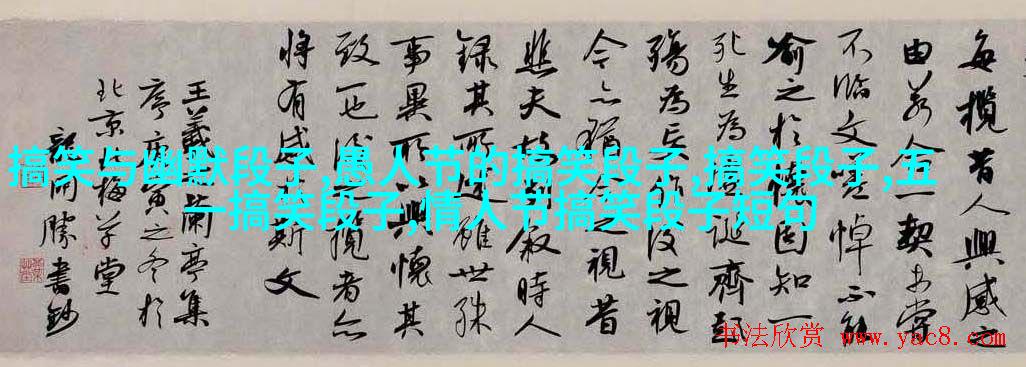 搞笑与幽默段子,愚人节的搞笑段子,搞笑段子,五
一搞笑段子,情人节搞笑段子短句
每攬昔人興感之
由若合一契未嘗
不臨文嗟悼不能
喻之於懷固知一
死生為虛誕齊彭
殤為妄作後之視
今亦猶今之視昔
悲夫故列叙時人
録其所述雖世殊
事異所以興懷其
致一也後之攬者亦
將有感於斯文
王羲之蘭亭集
序庚寅之冬於
北京梅草堂
開勝書鈔
书法欣赏 www.yac8.com